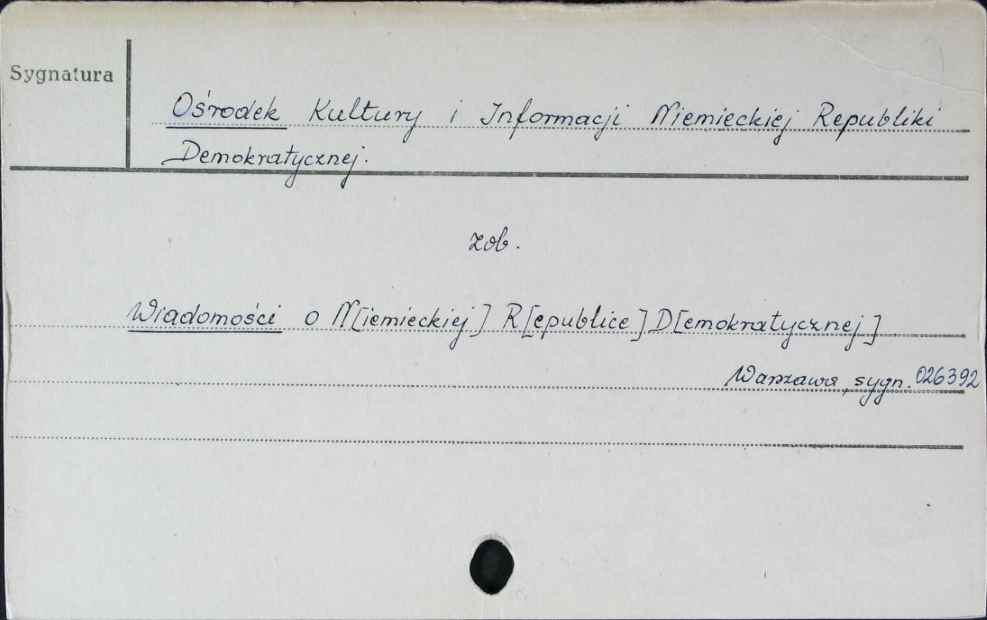 Sygnatura
Ośrodek Kultury i Informacji Niemieckiej Republiki
Demokratycznej.
zob.
Wiadomości o N[iemieckiej] R[epublice] D[emokratycznej]
Warszawa, sygn. 026392